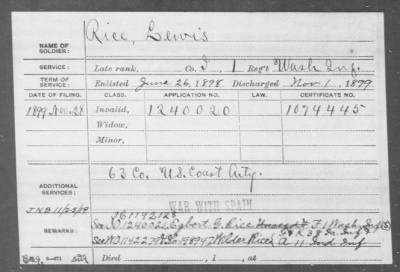 Rice, Lewis
NAME OF SOLDIER:
SERVICE: Late rank, Co. I, 1 Reg't Wash Inf.
TERM OF SERVICE: Enlisted June 26, 1898 Discharged Nov. 1, 1899
DATE OF FILING. CLASS. APPLICATION NO. LAW. CERTIFICATE NO.
1899 Nov. 28 Invalid, 1240020 1074445
Widow,
Minor,
ADDITIONAL SERVICES: 63 Co. U.S. Coast Arty.
WAR WITH SPAIN
JNB 11/25/19
REMARKS: Egbert G. Rice F 1 Wash Inf
Wilder Rice A 11 Ind Inf
Died , 1 , at